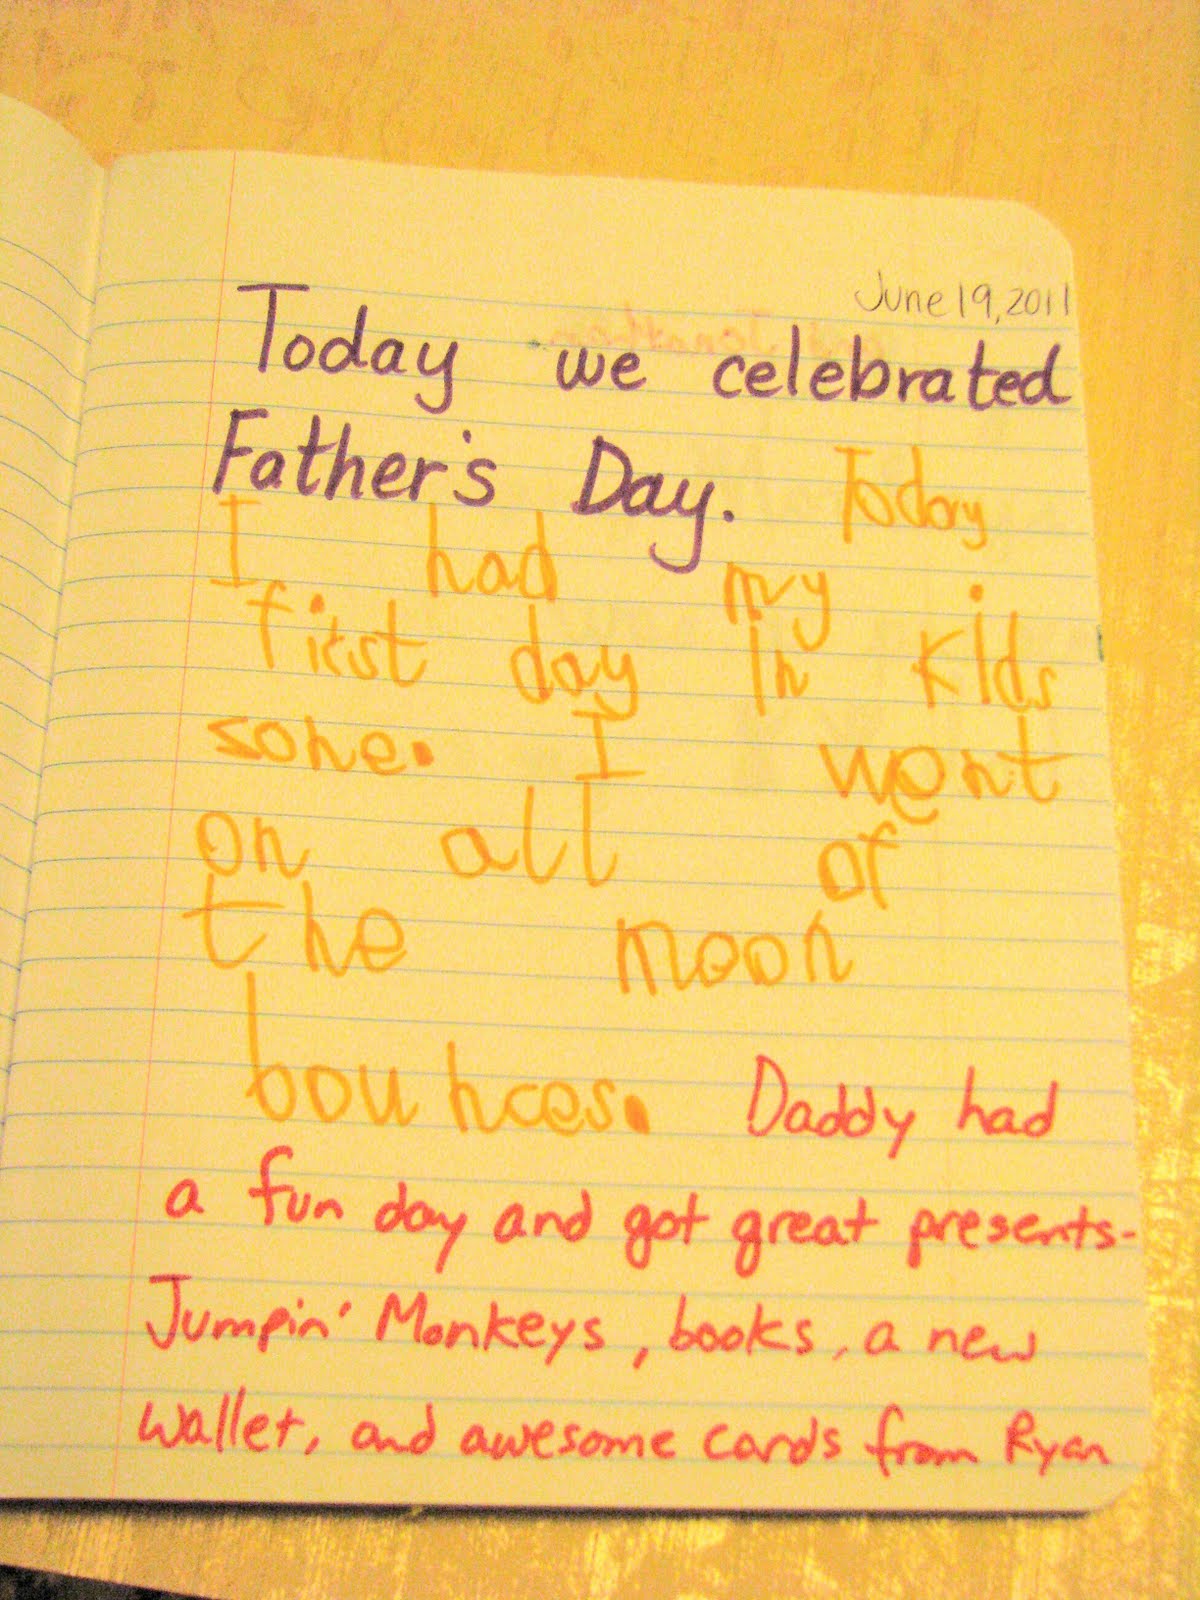 June 19, 2011
Today we celebrated
Father's Day. Today
I had my
first day in kids
sone. I went
on all of
the moon
bounces. Daddy had
a fun day and got great presents-
Jumpin' Monkeys, books, a new
wallet, and awesome cards from Ryan